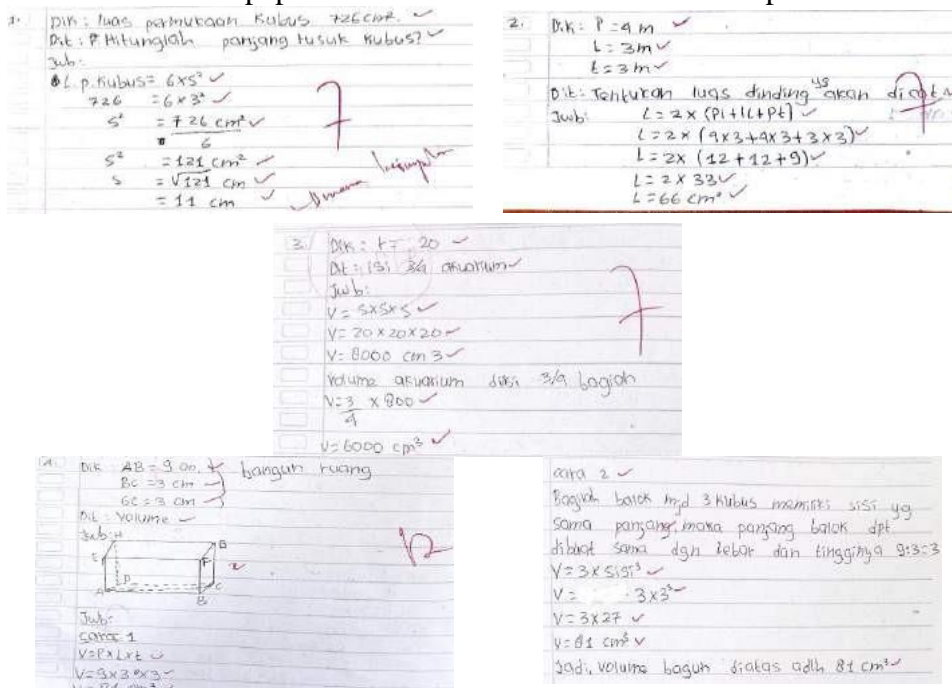 1. Dik : luas permukaan kubus 726 cm².
Dit : Hitunglah panjang rusuk kubus?
Jwb :
L.p.kubus = 6×s²
726 = 6×3²
s² = 726 cm²
6
s² = 121 cm²
s = √121 cm
= 11 cm
Dimana kesimpulan
7
2. Dik : P = 4 m
L = 3 m
t = 3 m
Dit : Tentukan luas dinding yg akan dicat
Jwb : L = 2 × (Pl + lt + Pt)
L = 2 × (4×3+4×3+3×3)
L = 2× (12+12+9)
L = 2 × 33
L = 66 cm²
7
3. Dik : r = 20
Dit : isi 3/4 akuarium
Jwb :
V = s×s×s
V = 20×20×20
V = 8000 cm 3
Volume akuarium diisi 3/4 bagian
V = 3 × 800
4
V = 6000 cm³
7
Dik AB = 9 cm bangun ruang
BC = 3 cm
GC = 3 cm
Dit : Volume
Jwb : H
G
E
F
D
A
C
B
12
Jwb :
cara 1
V = P×L×t
V = 9×3×3
cara 2
Bagilah balok mjd 3 kubus memiliki sisi yg
sama panjang, maka panjang balok dpt
dibuat sama dgn lebar dan tingginya 9:3=3
V = 3 × sisi³
V = 3×3³
V = 3×27
V = 81 cm³
Jadi, volume bagun diatas adlh 81 cm³